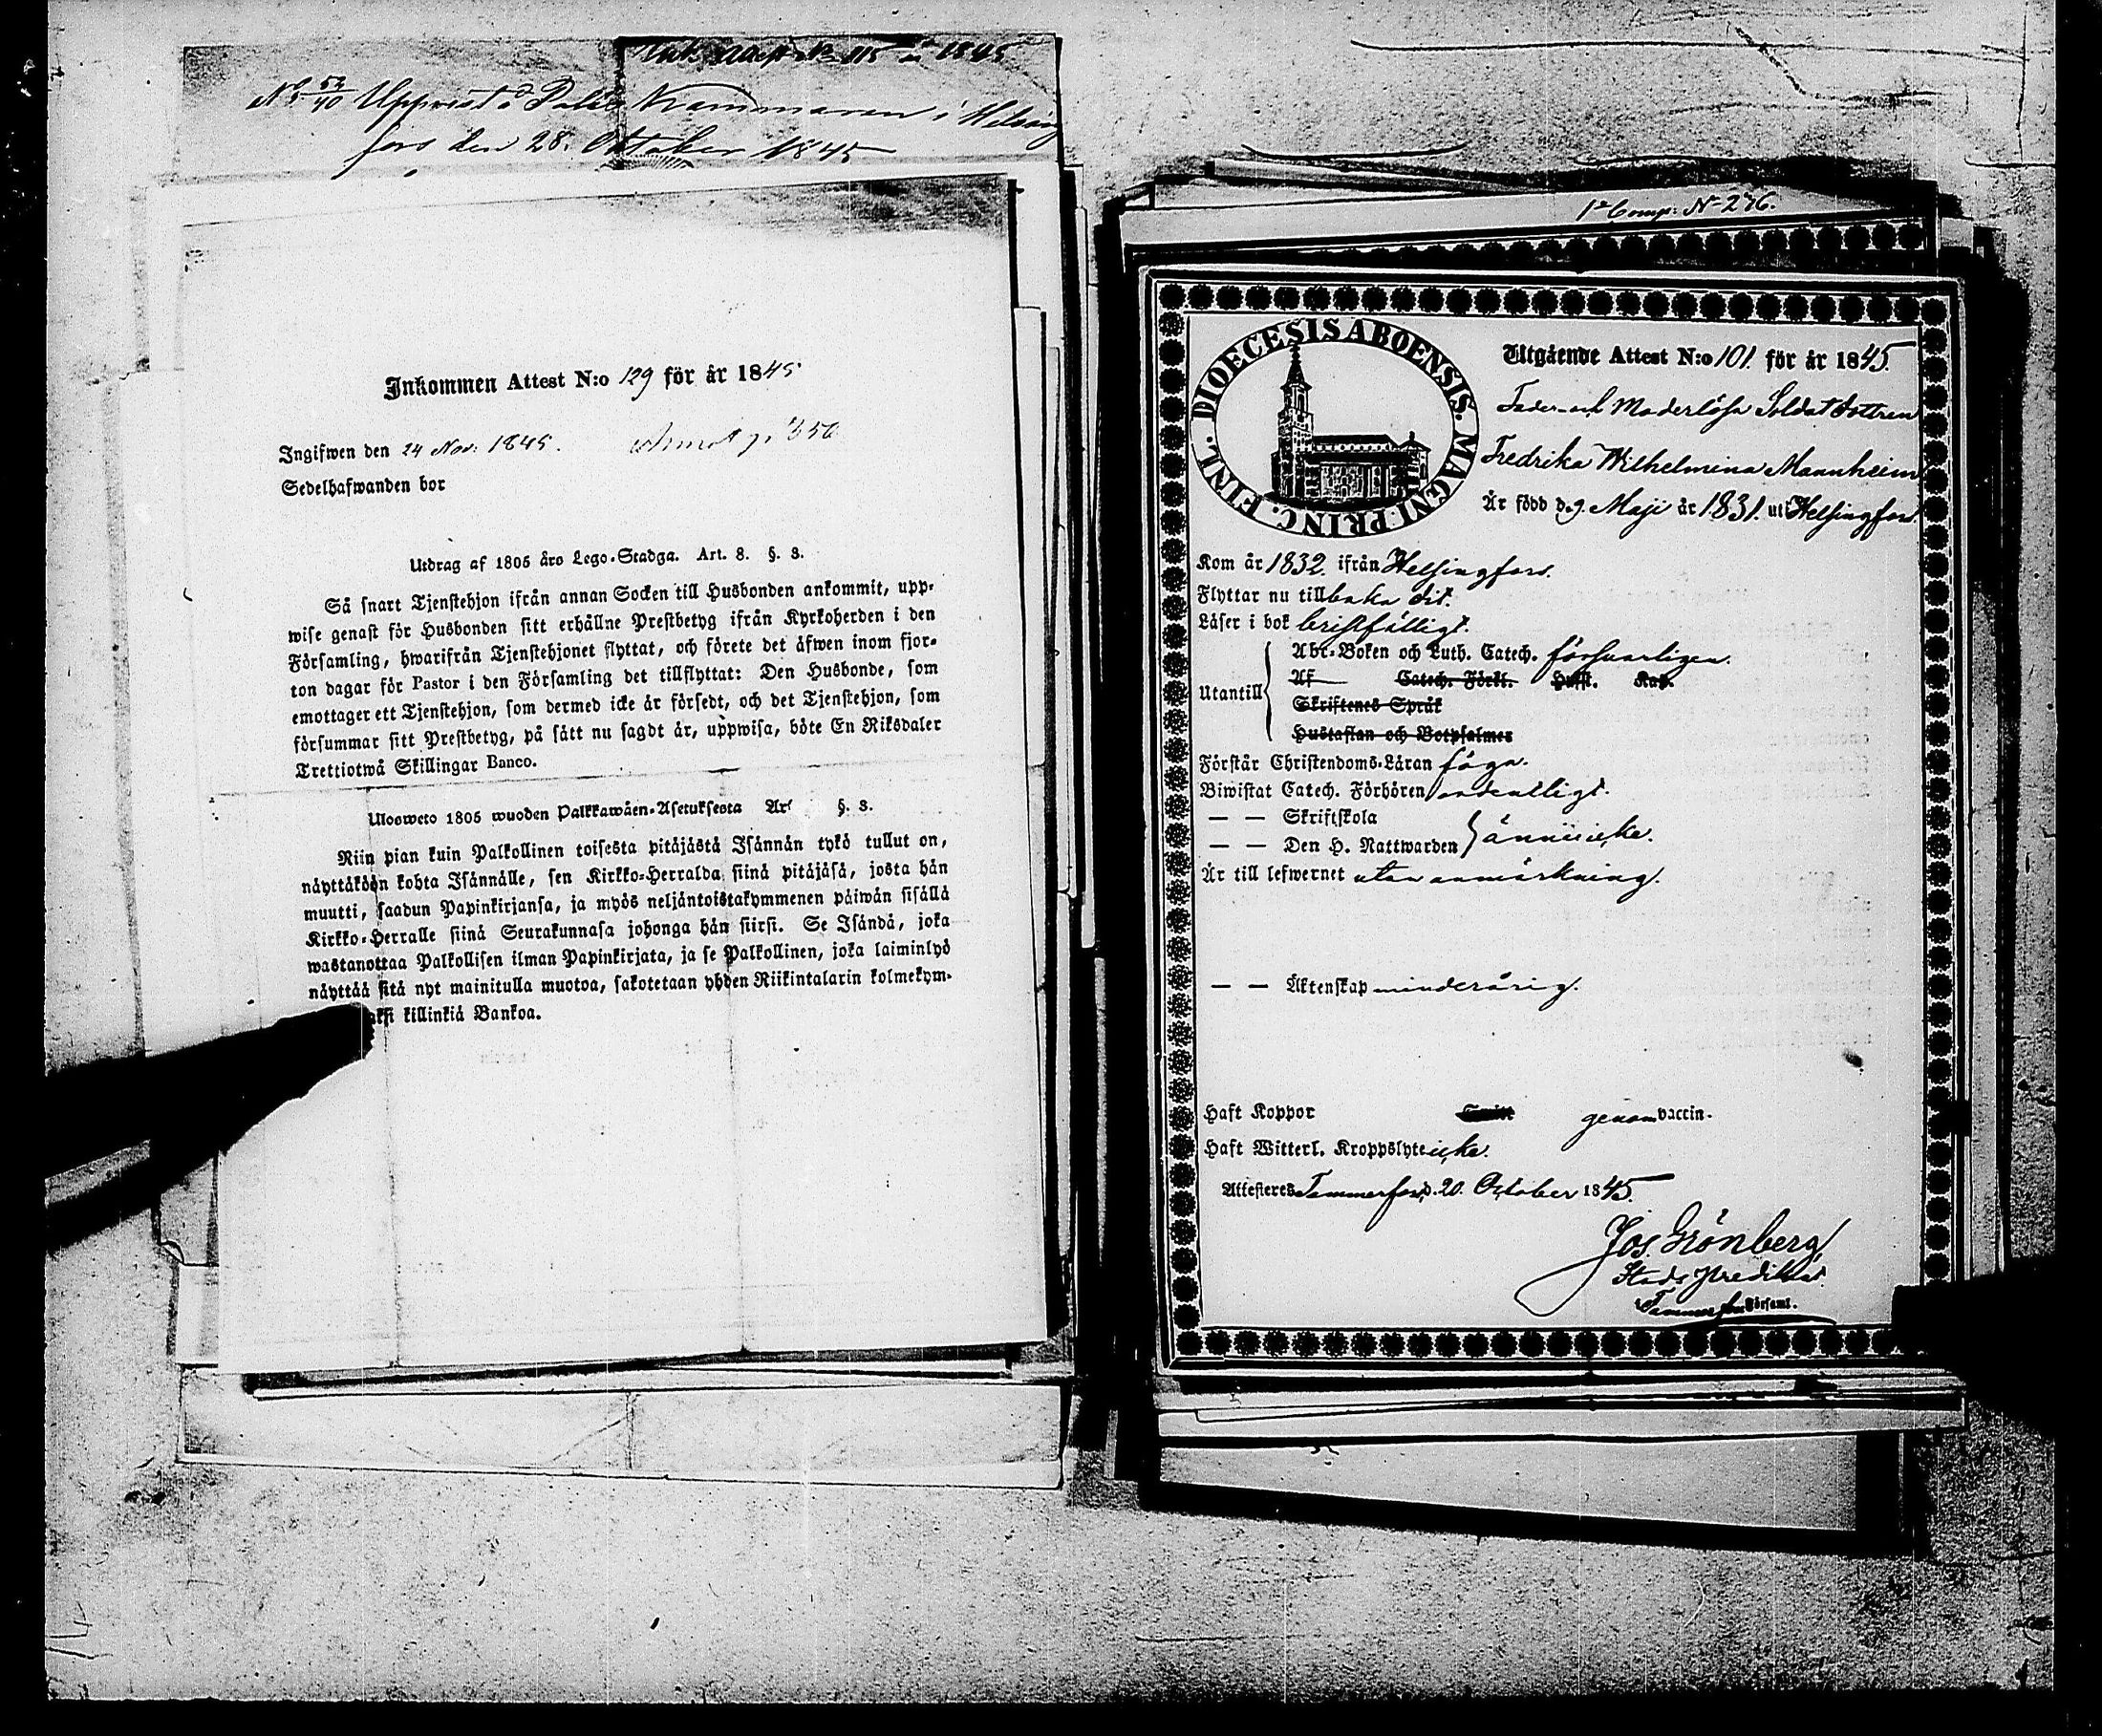 N:o 52/40 Uppvist å Polis Kammaren i Helsing
fors den 28. Oktober 1845
Inkommen Attest N:o 129 för år 1845
Ingifwen den 24 Nov: 1845.
Sedelhafwanden bor
Utdrag af 1805 års Lego-Stadga. Art. 8. §. 3.
Så snart Tjenstehjon ifrån annan Socken till Husbonden ankommit, upp-
wise genast för Husbonden sitt erhållne Prestbetyg ifrån Kyrkoherden i den
Församling, hwarifrån Tjenstehjonet flyttat, och förete det äfwen inom fjor-
ton dagar för Pastor i den Församling det tillflyttat: Den Husbonde, som
emottager ett Tjenstehjon, som dermed icke är försedt, och det Tjenstehjon, som
försummar sitt Prestbetyg, på sätt nu sagdt är, uppwisa, böte En Riksdaler
Trettiotwå Skillingar Banco.
Ulosweto 1805 wuoden Palkkawäen-Asetuksesta Art §. 3.
Niin pian kuin Palkollinen toisesta pitäjästä Isännän tykö tullut on,
näyttäköön kohta Isännälle, sen Kirkko-Herralda siinä pitäjäsä, josta hän
muutti, saadun Papinkirjansa, ja myös neljäntoistakymmenen päiwän sisällä
Kirkko-Herralle siinä Seurakunnasa johonga hän siirsi. Se Isändä, joka
wastanottaa Palkollisen ilman Papinkirjata, ja se Palkollinen, joka laiminlyö
näyttää sitä nyt mainitulla muotoa, sakotetaan yhden Riikintalarin kolmekym-
aksi killinkiä Bankoa.
1:a Comp: N:o 276.
DIOECESIS ABOENSIS. MAGNI PRINC. FINL.
Utgående Attest N:o 101. för år 1845.
Fader- och Moderlösa Soldatdottren
Fredrika Wilhelmina Mannheim
Är född d. 9. Maji år 1831. uti Helsingfors.
Kom år 1832. ifrån Helsingfors.
Flyttar nu tillbaka dit.
Läser i bok bristfälligt.
Utantill
Abc-Boken och Luth. Catech. försvarligen.
Af Catech. Förkl. Hufst. Kap.
Skriftenes Språk
Hustaflan och Botpsalmer
Förstår Christendoms-Läran föga.
Biwistat Catech. Förhören ordentligt.
— — Skriftskola
— — Den H. Nattwarden } ännu icke.
Är till lefwernet utan anmärkning.
— — Äktenskap minderårig.
Haft Koppor genom vaccin.
Haft Witterl. Kroppslyte icke.
Attesteres Tammerfors, d. 20. October 1845.
Jos. Grönberg,
Stads Predikat.
i Tammerfors Församl.